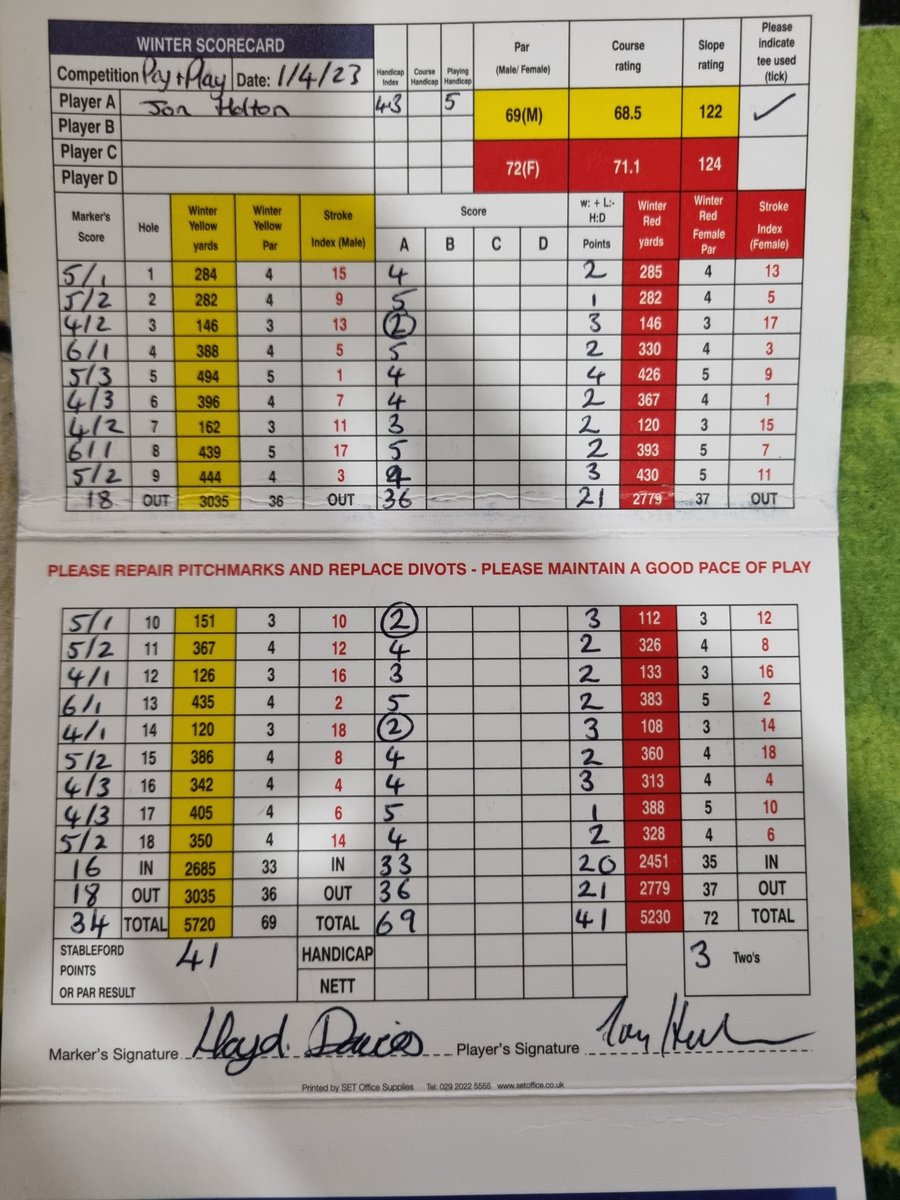 WINTER SCORECARD
Competition Pay + Play Date: 1/4/23 Handicap Index Course Handicap Playing Handicap Par (Male/ Female) Course rating Slope rating Please indicate tee used (tick)
Player A Jon Holton 43 5 69(M) 68.5 122 ✓
Player B
Player C 72(F) 71.1 124
Player D
Marker's Score Hole Winter Yellow yards Winter Yellow Par Stroke Index (Male) Score A B C D w: + L:- H:D Points Winter Red yards Winter Red Female Par Stroke Index (Female)
5/1 1 284 4 15 4 2 285 4 13
5/2 2 282 4 9 5 1 282 4 5
4/2 3 146 3 13 2 3 146 3 17
6/1 4 388 4 5 5 2 330 4 3
5/3 5 494 5 1 4 4 426 5 9
4/3 6 396 4 7 4 2 367 4 1
4/2 7 162 3 11 3 2 120 3 15
6/1 8 439 5 17 5 2 393 5 7
5/2 9 444 4 3 4 3 430 5 11
18 OUT 3035 36 OUT 36 21 2779 37 OUT
PLEASE REPAIR PITCHMARKS AND REPLACE DIVOTS - PLEASE MAINTAIN A GOOD PACE OF PLAY
5/1 10 151 3 10 2 3 112 3 12
5/2 11 367 4 12 4 2 326 4 8
4/1 12 126 3 16 3 2 133 3 16
6/1 13 435 4 2 5 2 383 5 2
4/1 14 120 3 18 2 3 108 3 14
5/2 15 386 4 8 4 2 360 4 18
4/3 16 342 4 4 4 3 313 4 4
4/3 17 405 4 6 5 1 388 5 10
5/2 18 350 4 14 4 2 328 4 6
16 IN 2685 33 IN 33 20 2451 35 IN
18 OUT 3035 36 OUT 36 21 2779 37 OUT
34 TOTAL 5720 69 TOTAL 69 41 5230 72 TOTAL
STABLEFORD POINTS OR PAR RESULT 41 HANDICAP 3 Two's
NETT
Marker's Signature Lloyd. Davies Player's Signature
Printed by SET Office Supplies Tel: 029 2022 5555 www.setoffice.co.uk